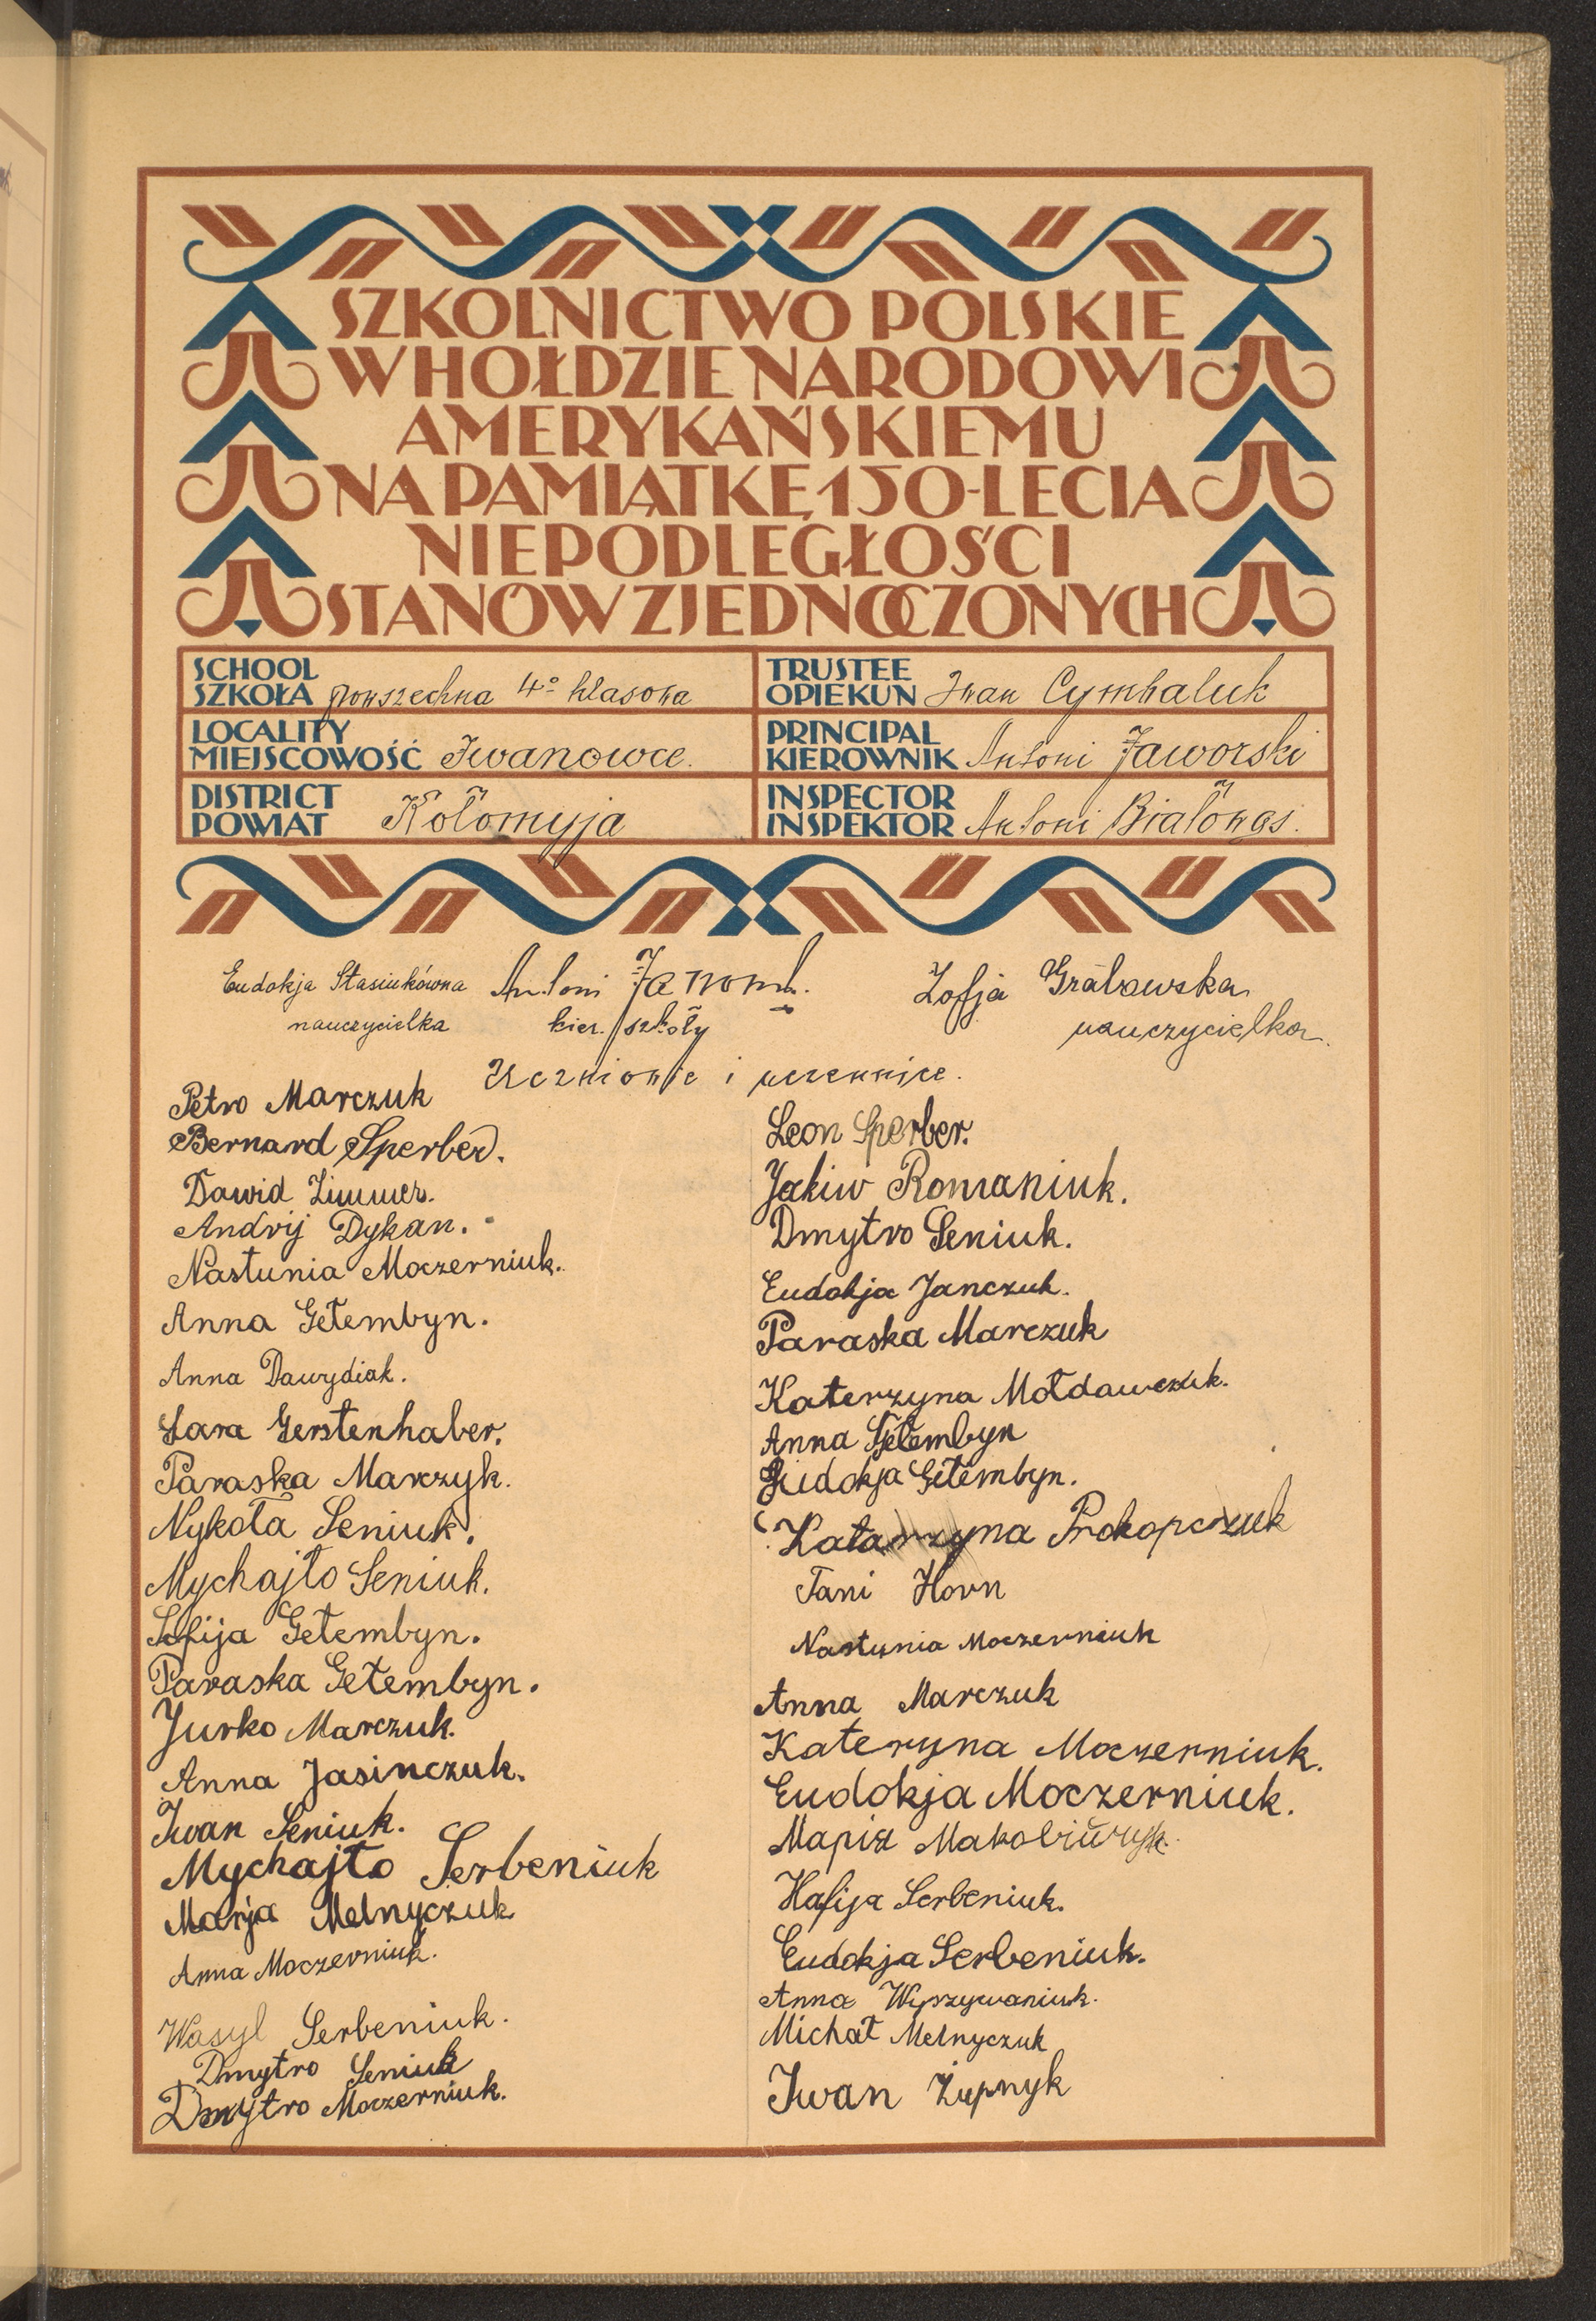 SZKOLNICTWO POLSKIE
W HOŁDZIE NARODOWI
AMERYKAŃSKIEMU
NA PAMIĄTKĘ 150-LECIA
NIEPODLEGŁOŚCI
STANÓW ZJEDNOCZONYCH
SCHOOL
SZKOŁA powszechna 4º klasowa
TRUSTEE
OPIEKUN Iwan Cymbaluk
LOCALITY
MIEJSCOWOŚĆ Iwanowce.
PRINCIPAL
KIEROWNIK Antoni Jaworski
DISTRICT
POWIAT Kołomyja
INSPECTOR
INSPEKTOR Antoni Białowąs.
Eudokja Stasiukówna
nauczycielka
Antoni
kier. szkoły
Zofja Grabowska
nauczycielka.
Uczniowie i uczennice.
Petro Marczuk
Bernard Sperber.
Dawid Zimmer.
Andrij Dykan.
Nastunia Moczerniuk.
Anna Getembyn.
Anna Dawydiak.
Sara Gerstenhaber.
Paraska Marczyk.
Nykoła Seniuk.
Mychajło Seniuk.
Sofija Getembyn.
Paraska Getembyn.
Jurko Marczuk.
Anna Jasinczuk.
Iwan Seniuk.
Mychajło Serbeniuk
Marja Melnyczuk
Anna Moczerniuk.
Wasyl Serbeniuk.
Dmytro Seniuk
Dmytro Moczerniuk.
Leon Sperber.
Jakiw Romaniuk.
Dmytro Seniuk.
Eudokja Janczuk.
Paraska Marczuk
Katerzyna Mołdawczuk.
Anna Getembyn
Eudokja Getembyn.
Katarzyna Prokopczuk
Fani Horn
Nastunia Moczerniuk
Anna Marczuk
Kateryna Moczerniuk.
Eudokja Moczerniuk.
Марія
Hafija Serbeniuk.
Eudokja Serbeniuk.
Anna Wyszywaniuk.
Michał Melnyczuk
Iwan Żupnyk